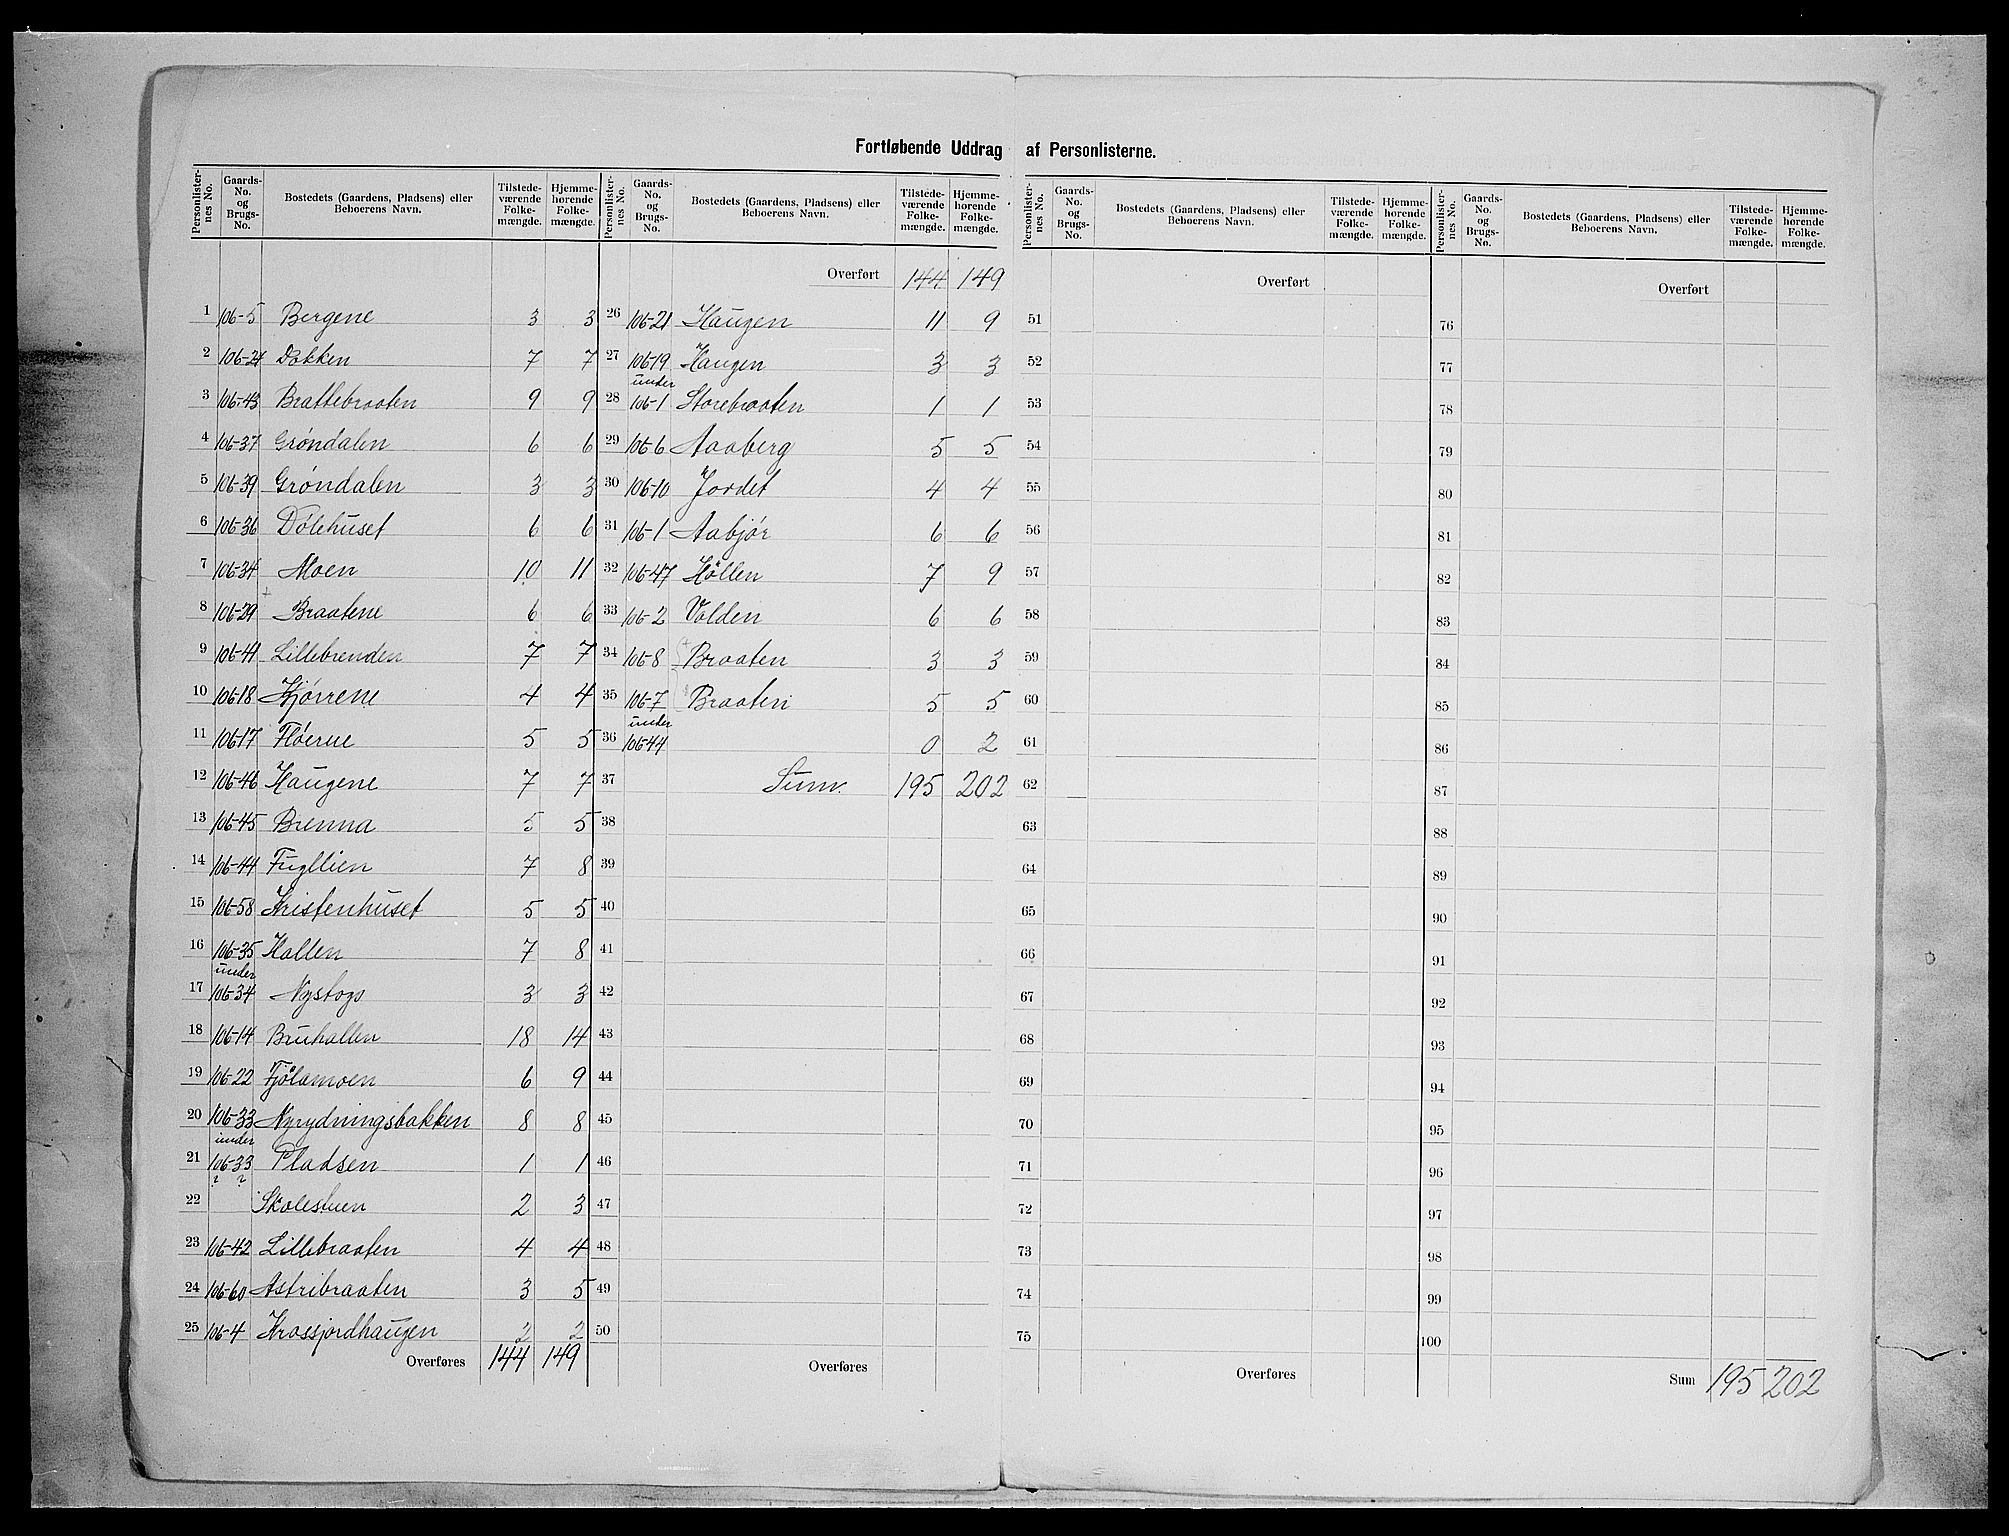 Fortløbende Uddrag af Personlisterne.
Personlister-nes No. Gaards-No. og Brugs-No. Bostedets (Gaardens, Pladsens) eller Beboerens Navn. Tilstede-værende Folke-mængde. Hjemme-hørende Folke-mængde.
1 106-5 Bergene 3 3
2 106-24 Dokken 7 7
3 106-43 Brattebraaten 9 9
4 106-37 Grøndalen 6 6
5 106-39 Grøndalen 3 3
6 106-36 Dölehuset 6 6
7 106-34 Moen 10 11
8 106-29 + Braatene 6 6
9 106-41 Lillebrenden 7 7
10 106-18 Kjørrene 4 4
11 106-17 Fløerne 5 5
12 106-46 Haugene 7 7
13 106-45 Brenna 5 5
14 106-44 Fugllien 7 8
15 106-58 Kristenhuset 5 5
16 106-35 Hallen 7 8
under
17 106-34 Nystogo 3 3
18 106-14 Bruhallen 18 14
19 106-22 Fjölamoen 6 9
20 106-33 Nyrydningsbakken 8 8
under
21 106-33 Pladsen 1 1
? ?
22 Skolestuen 2 3
23 106-42 Lillebraaten 4 4
24 106-60 Astribraaten 3 5
25 106-4 Krossjordhaugen 2 2
Overføres 144 149
Personlister-nes No. Gaards-No. og Brugs-No. Bostedets (Gaardens, Pladsens) eller Beboerens Navn. Tilstede-værende Folke-mængde. Hjemme-hørende Folke-mængde.
Overført 144 149
26 106-21 Haugen 11 9
27 106-19 Haugen 3 3
under
28 106-1 Storebraaten 1 1
29 106-6 Aaberg 5 5
30 106-10 Jordet 4 4
31 106-1 Aabjör 6 6
32 106-47 Höllen 7 9
33 106-2 Volden 6 6
34 106-8 + Braaten 3 3
35 106-7 Braaten 5 5
under
36 106-44 0 2
37 Sum. 195 202
38
39
40
41
42
43
44
45
46
47
48
49
50
Overføres
Personlister-nes No. Gaards-No. og Brugs-No. Bostedets (Gaardens, Pladsens) eller Beboerens Navn. Tilstede-værende Folke-mængde. Hjemme-hørende Folke-mængde.
Overført
51
52
53
54
55
56
57
58
59
60
61
62
63
64
65
66
67
68
69
70
71
72
73
74
75
Overføres
Personlister-nes No. Gaards-No. og Brugs-No. Bostedets (Gaardens, Pladsens) eller Beboerens Navn. Tilstede-værende Folke-mængde. Hjemme-hørende Folke-mængde.
Overført
76
77
78
79
80
81
82
83
84
85
86
87
88
89
90
91
92
93
94
95
96
97
98
99
100
Sum 195 202